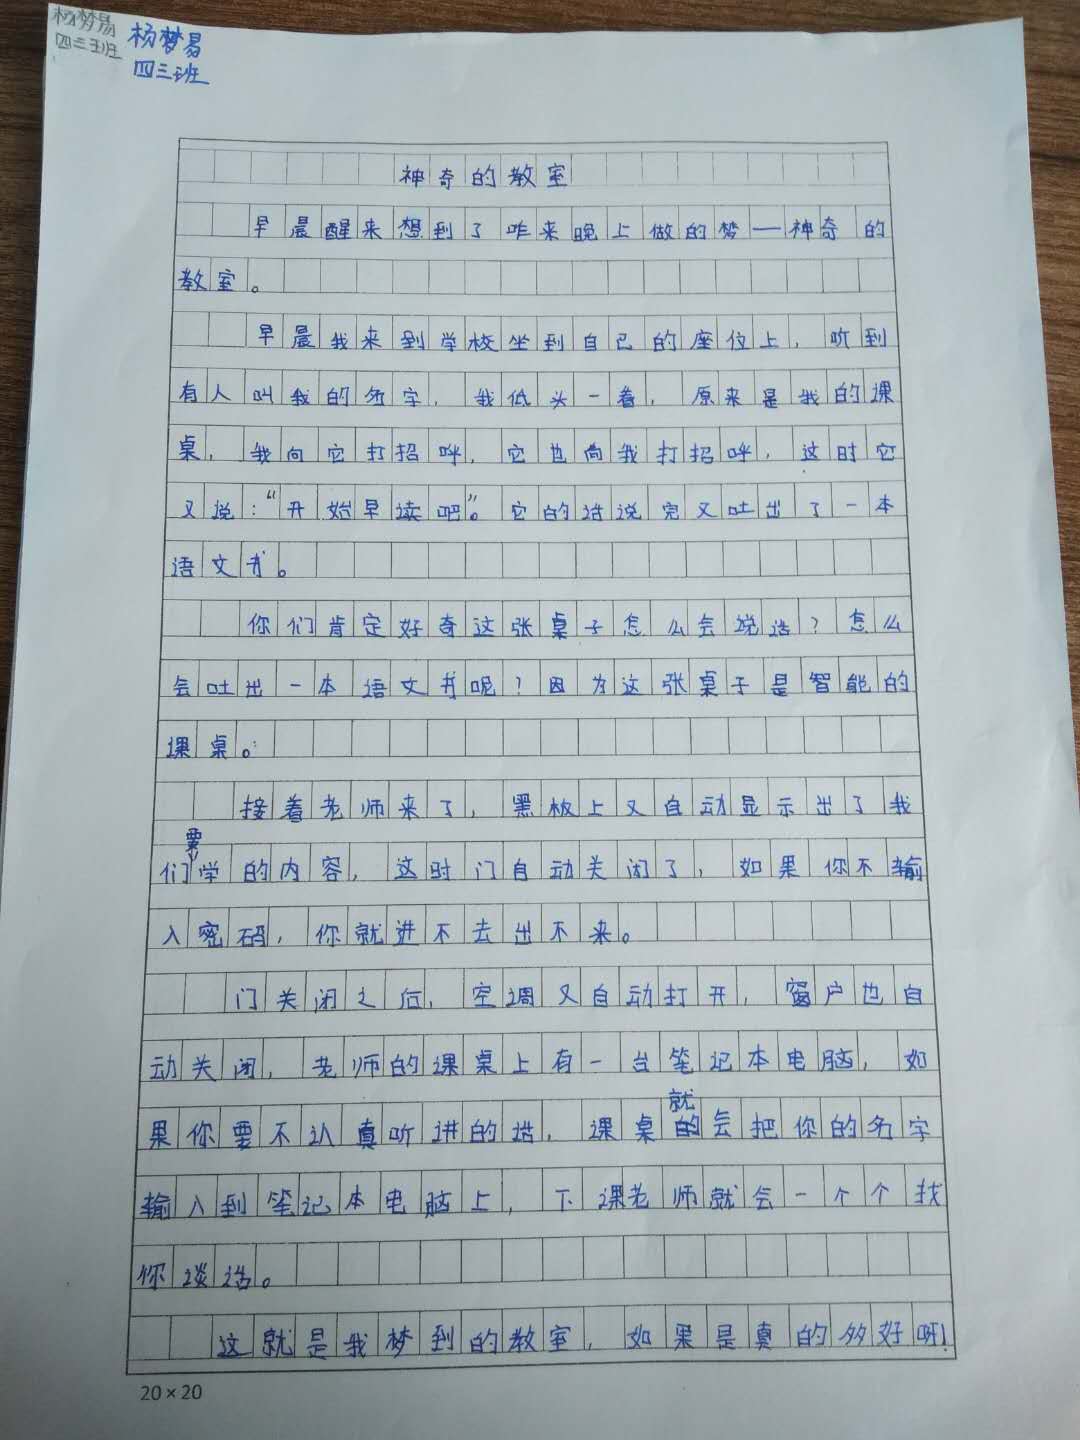 杨梦易
四三班
杨梦易
四三班
神奇的教室
早晨醒来想到了昨来晚上做的梦—神奇的
教室。
早晨我来到学校坐到自己的座位上，听到
有人叫我的名字，我低头一看，原来是我的课
桌，我向它打招呼，它也向我打招呼，这时它
又说：“开始早读吧”。它的话说完又吐出了一本
语文书。
你们肯定好奇这张桌子怎么会说话？怎么
会吐出一本语文书呢？因为这张桌子是智能的
课桌。
接着老师来了，黑板上又自动显示出了我
们要学的内容，这时门自动关闭了，如果你不输
入密码，你就进不去出不来。
门关闭之后，空调又自动打开，窗户也自
动关闭，老师的课桌上有一台笔记本电脑，如
果你要不认真听讲的话，课桌就的会把你的名字
输入到笔记本电脑上，下课老师就会一个个找
你谈话。
这就是我梦到的教室，如果是真的多好呀！
20×20